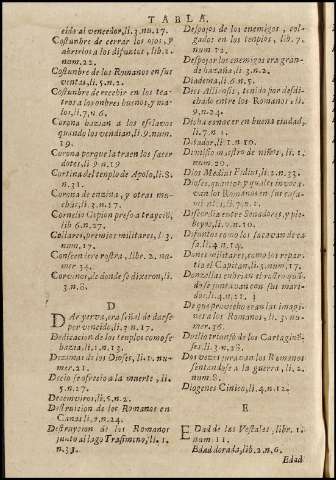 TABLA.
cido al vencedor, li.3.nu.17.
Costunbre de cerrar los ojos, y
abrirlos a los difuntos, lib.1.
num.22.
Costunbre de los Romanos en sus
ventas, li.5.n.2.
Costunbre de recebir en los tea-
tros a los onbres buenos, y ma-
los, li.7.n.6.
Corona hazian a los esclavos
quando los vendian, li.9.num.
19.
Corona porque la traen los sacer
dotes, li.9.n.19
Cortina del templo de Apolo, li.8.
n.31.
Corona de enzina, y otras mu-
chas, li.3.n.17.
Cornelio Cipion preso a traycio,
lib 6.n.27.
Collares, premios militares, l.3.
num.17.
Consentiere rostra, libr.2. nu-
mer.34.
Corcines, de donde se dixeron, li.
3.n.8.
D
DAr yerva, era señal de darse
por vencido, li.3.n.17.
Dedicacion de los templos como se
hazia, li.1.n.13.
Dezimas de los Dioses, li.1. nu-
mer.21.
Decio se ofrecio a la muerte, li.
5.n.17.
Decemviros, li.5.n.2.
Destruicion de los Romanos en
Canas li.7.n.24.
Destruycion de los Romanos
junto al lago Trasimino, li.1.
n.33.
Despojos de los enemigos, col-
gados en los tenplos, lib.7.
num 12.
Despojar los enemigos era gran-
de hazaña, li.3.n.2.
Diadema, li.6.n.5.
Dies Alliensis, tenido por desdi-
chado entre los Romanos, li.
9.n.24.
Dicha conocer en buena ciudad,
li.7.n 1.
Ditador, li 1.n 10.
Dionisio maestro de niños, li.1.
num.20.
Dios Medius Fidius, li.2.n.33.
Dioses, quantos, y quales invoca-
van los Romanos en sus casa-
mientos
Discordia entre Senadores, y ple-
beyos, li.7.n.10.
Difuntos como los sacavan de ca-
sa, li.4.n 14.
Dones militares, como los repar-
tia el Capitan, li.3.num.17.
Donzellas cubrian el rostro quã-
do se juntavan con sus mari-
dos, li.4.n.21.
De que provecho eran las imagi-
nes a los Romanos, li.3. nu-
mer.36.
Duelio triunfo de los Cartagine-
ses, li.3.n.28.
Dos vezes juravan los Romanos
sentandose a la guerra, li.2.
num.8.
Diogenes Cinico, li.4.n.12.
E
EDad de las Vestales, libr.1.
num.11.
Edad dorada, lib.2.n.6.
Edad